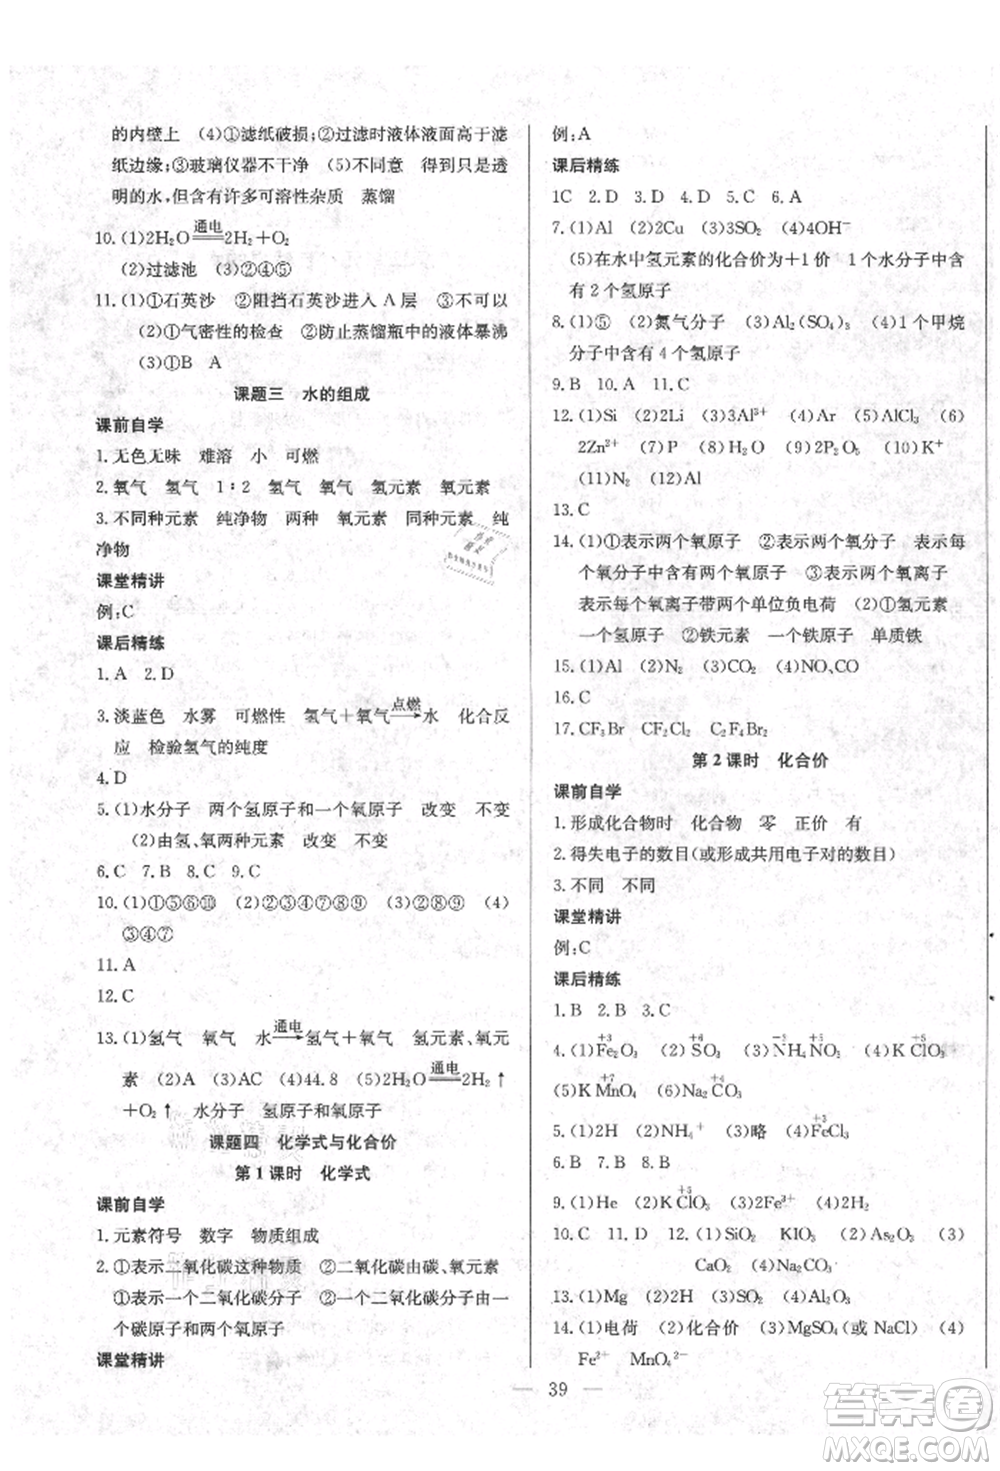 的内壁上 (4)①滤纸破损;②过滤时液体液面高于滤
纸边缘;③玻璃仪器不干净 (5)不同意 得到只是透
明的水,但含有许多可溶性杂质 蒸馏
通电
10. (1)2H₂O══2H₂+O₂
(2)过滤池 (3)②④⑤
11. (1)①石英沙 ②阻挡石英沙进入 A 层 ③吸附
(2)①气密性的检查 ②防止蒸馏瓶中的液体暴沸
(3)①B A
课题三 水的组成
课前自学
1. 无色无味 难溶 小 可燃
2. 氧气 氢气 1∶2 氢气 氧气 氢元素 氧元素
3. 不同种元素 纯净物 两种 氧元素 同种元素 纯
净物
课堂精讲
例:C
课后精练
1. A 2. D
点燃
3. 淡蓝色 水雾 可燃性 氢气+氧气⟶水 化合反
应 检验氢气的纯度
4. D
5. (1)水分子 两个氢原子和一个氧原子 改变 不变
(2)由氢、氧两种元素 不变 不变
6. C 7. B 8. C 9. C
10. (1)①⑤⑥⑩ (2)②⑧⑨ (3)②⑧⑨ (4)
③④⑦
11. A
12. C
通电
13. (1)氢气 氧气 水⟶氢气+氧气 氢元素、氧元
通电
素 (2)A (3)AC (4)44.8 (5)2H₂O══2H₂↑
+O₂↑ 水分子 氢原子和氧原子
课题四 化学式与化合价
第 1 课时 化学式
课前自学
1. 元素符号 数字 物质组成
2. ①表示二氧化碳这种物质 ②二氧化碳由碳、氧元素
①表示一个二氧化碳分子 ②一个二氧化碳分子由一
个碳原子和两个氧原子
课堂精讲
例:A
课后精练
1C 2. D 3. D 4. D 5. C 6. A
7. (1)Al (2)Cu (3)SO₂ (4)OH⁻
(5)在水中氢元素的化合价为+1价 1个水分子中含
有 2 个氢原子
8. (1)⑤ (2)氮气分子 (3)Al₂(SO₄)₃ (4)1个甲烷
分子中含有 4 个氢原子
9. B 10. A 11. C
12. (1)Si (2)2Li (3)3Al³⁺ (4)Ar (5)AlCl₃ (6)
2Zn²⁺ (7)P (8)H₂O (9)N₂ (10)K⁺
(11)N₂ (12)Al
13. C
14. (1)①表示两个氧原子 ②表示两个氧分子 表示每
个氧分子中含有两个氧原子 ③表示两个氧离子
表示每个氧离子带两个单位负电荷 (2)①氢元素
一个氢原子 ②铁元素 一个铁原子 单质铁
15. (1)Al (2)N₂ (3)CO₂ (4)NO、CO
16. C
17. CF₃Br CF₂Cl₂ C₂F₄Br₂
第 2 课时 化合价
课前自学
1. 形成化合物时 化合物 零 正价 有
2. 得失电子的数目(或形成共用电子对的数目)
3. 不同 不同
课堂精讲
例:C
课后精练
1. B 2. B 3. C
+3 +6 -3 +5 +5
4. (1)Fe₂O₃ (2)SO₃ (3)NH₄NO₂ (4)KClO₃
+7
(5)KMnO₄ (6)略
+3
5. (1)2H (2)NH₄⁺ (3)略 (4)FeCl₃
6. B 7. B 8. C
+5
9. (1)He (2)KClO₃ (3)2Fe³⁺ (4)2H₂
10. C 11. D 12. (1)SiO₂ KIO₃ (2)As₂O₃ (3)
CaO₂ (4)MnO₂
13. (1)Mg (2)2H (3)SO₄²⁻ (4)Al₂O₃
14. (1)电荷 (2)化合价 (3)MgSO₄(或 NaCl) (4)
Fe²⁺ MnO₄²⁻
39
答案圈
MXQE.COM